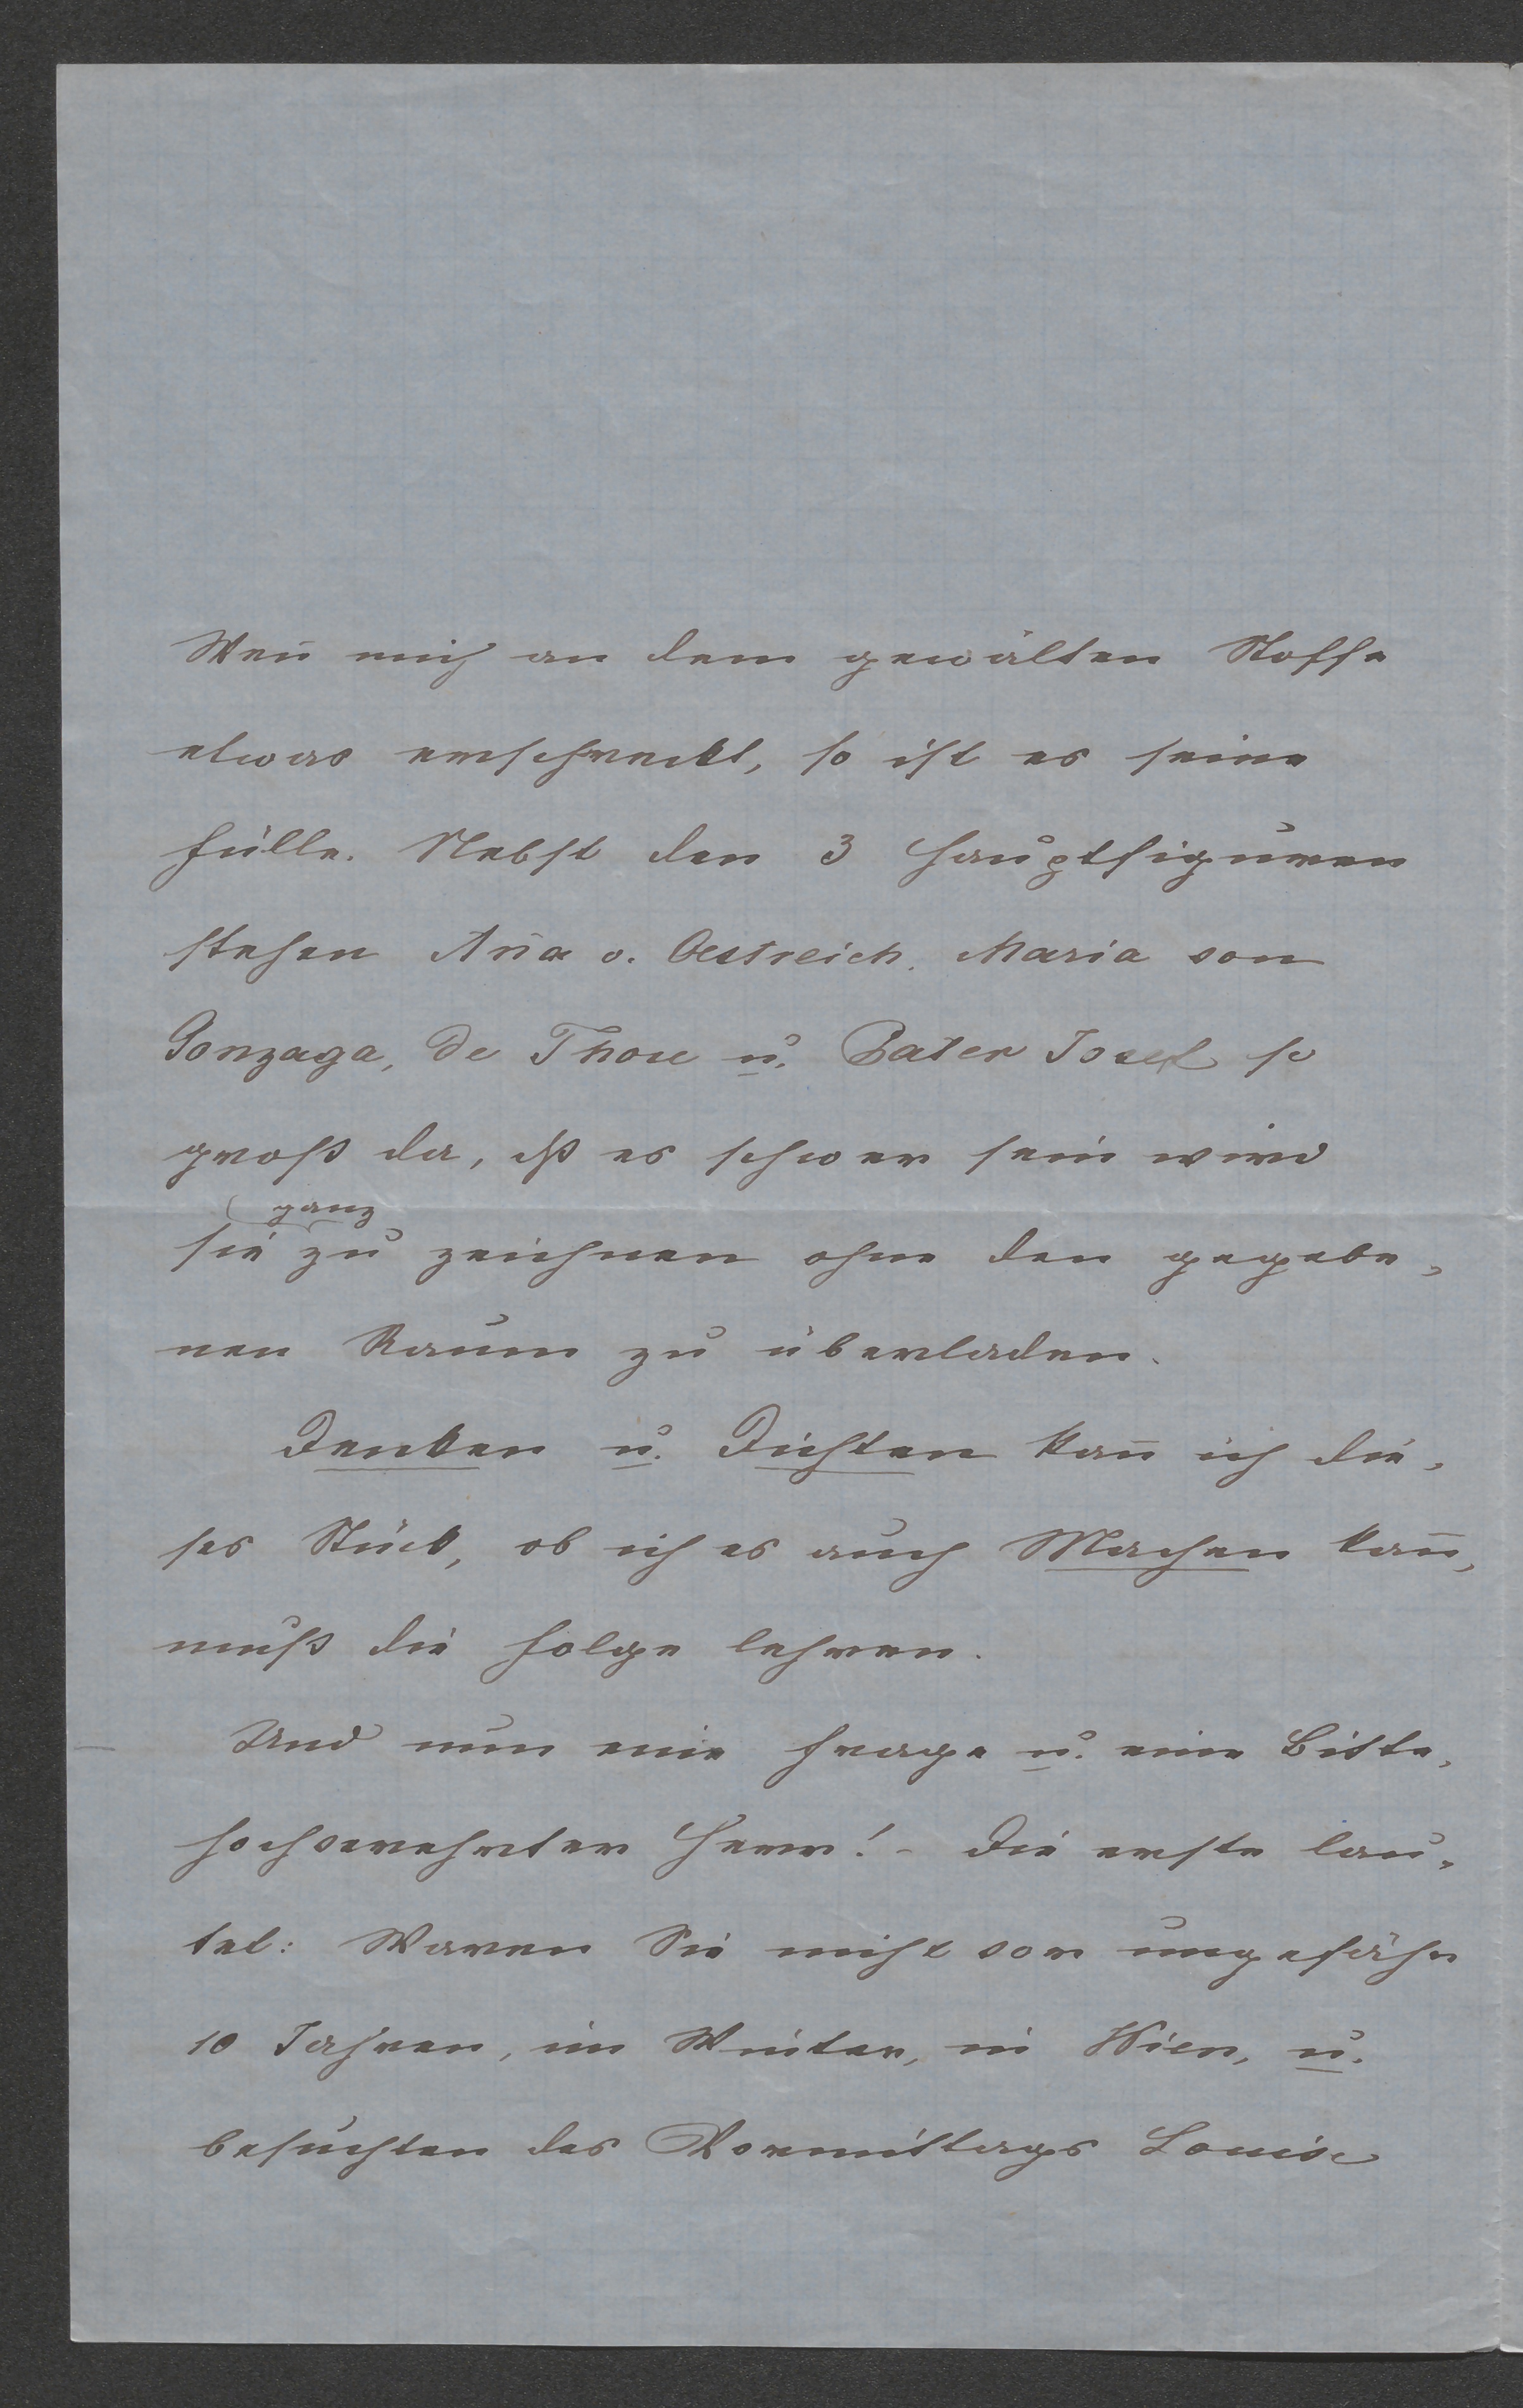 Wen̄ mich an dem gewälten Stoffe
etwas erschreckt, so ist es seine
Fülle. Nebst den 3 Hauptfiguren
stehen An̄a v. Oestreich, Maria von
Gonzaga, De Thou u. Pater Josef so
groß da, dß es schwer sein wird
ganz
sie zu zeichnen ohne den gegebe-
nen Raum zu überladen.
Denken u. Dichten kan̄ ich die-
ses Stück, ob ich es auch Machen kan̄,
muß die Folge lehren.
Und nun eine Frage u. eine Bitte,
hochverehrter Herr! - Die erste lau-
tet: Waren Sie nicht vor ungefähr
10 Jahren, im Winter, in Wien, u.
besuchten des Vormittags Louise